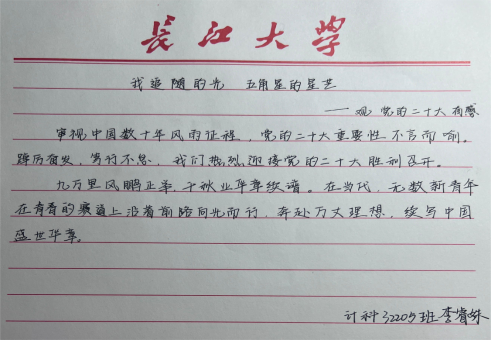 长江大学
我追随的光 五角星的星芒
——观党的二十大有感
审视中国数十年风雨征程，党的二十大重要性不言而喻。
踔厉奋发，笃行不怠，我们热烈迎接党的二十大胜利召开。
九万里风鹏正举，千秋业华章续谱。在当代，无数新青年
在青春的赛道上沿着前路向光而行，奔赴万丈理想，续写中国
盛世华章。
计科32205班李睿姝